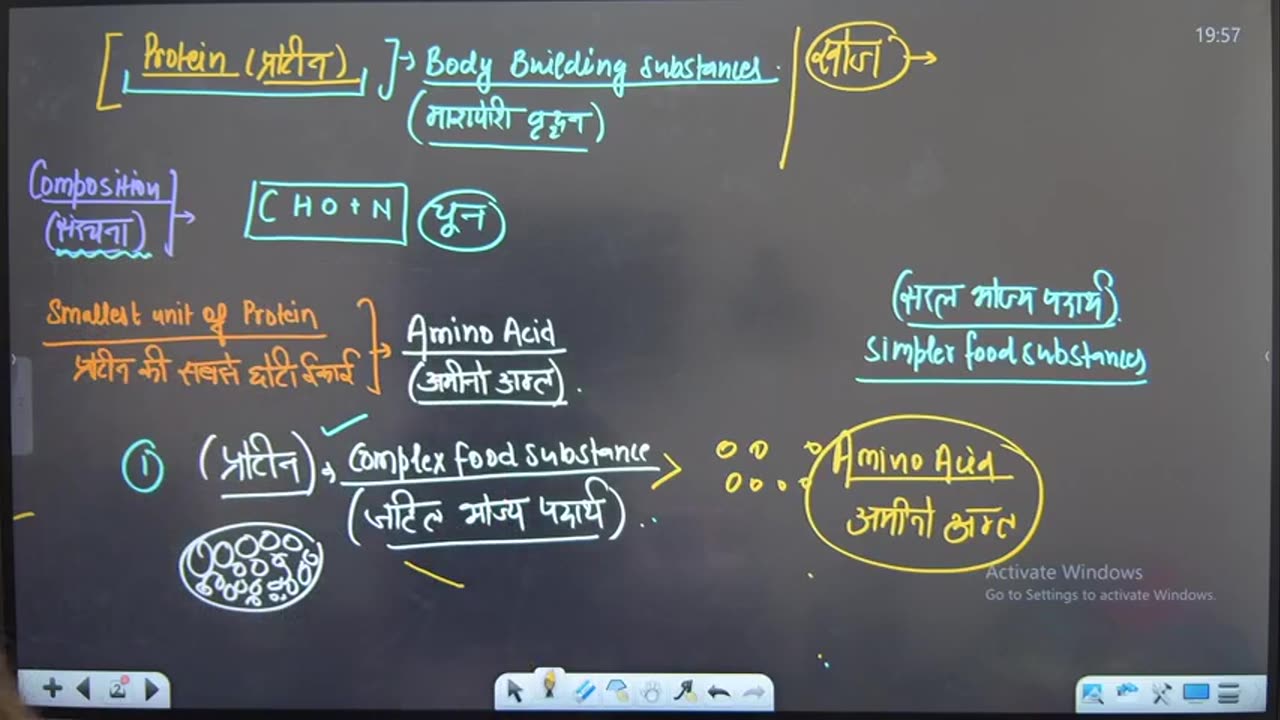 19:57
[ Protein (प्रोटीन) ] → Body Building substances.
(मासपेशी वृद्धन)
खोज →
Composition
(संरचना)
CHO+N
चून
Smallest unit of Protein
प्रोटीन की सबसे छोटी ईकाई
Amino Acid
(अमीनो अम्ल).
(सरल भोज्य पदार्थ).
Simpler food substances
① (प्रोटीन) → Complex food substance >
(जटिल भोज्य पदार्थ)..
Amino Acid
अमीनो अम्ल
Activate Windows
Go to Settings to activate Windows.
2